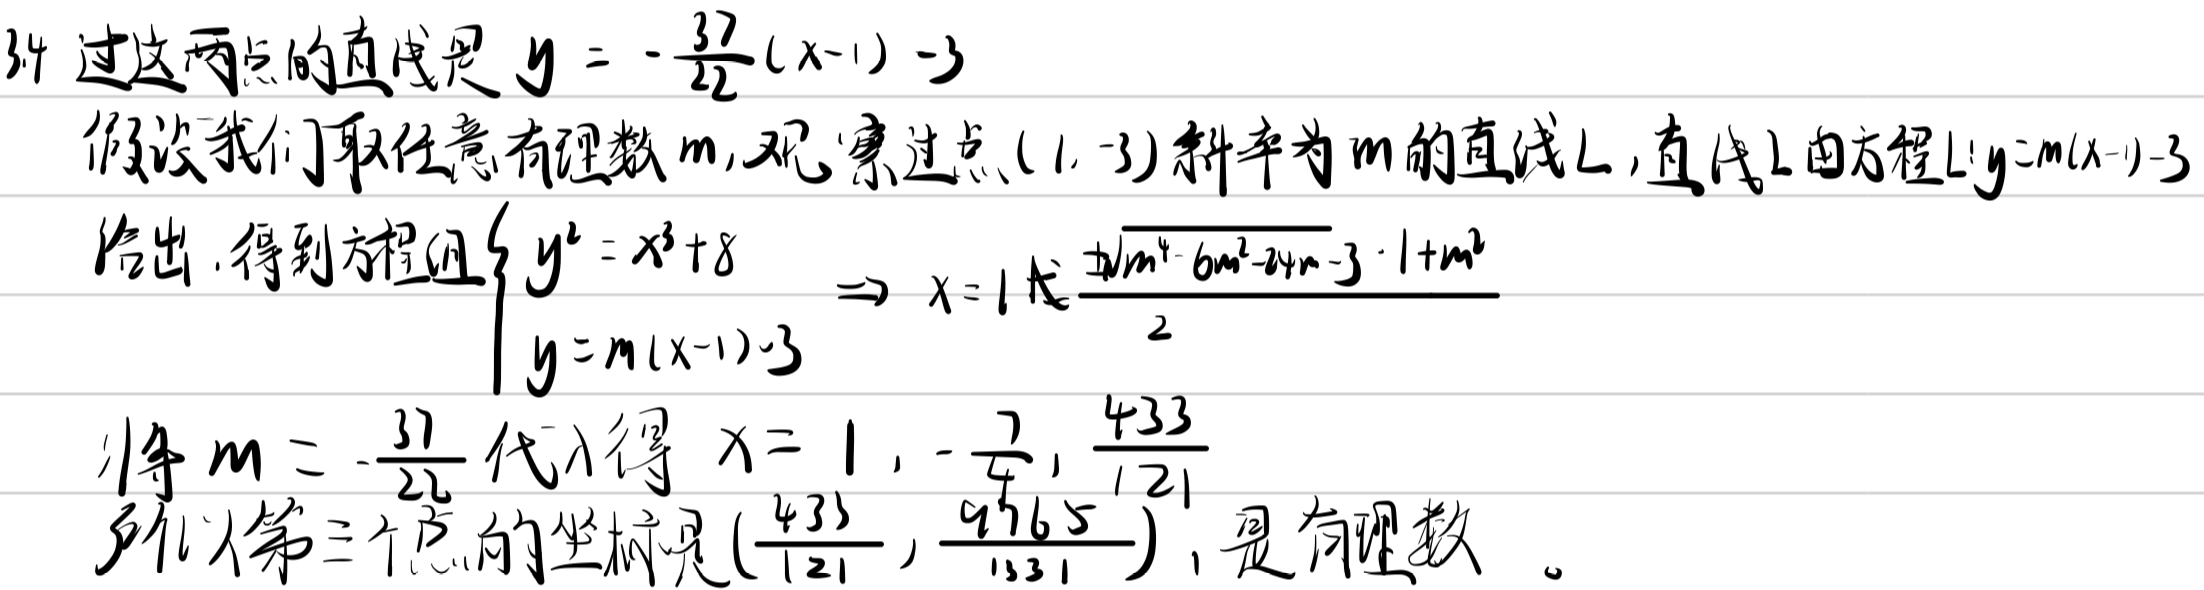 3.4 过这两点的直线是 y = -37/22 (x-1) -3
假设我们取任意有理数m,观察过点(1,-3)斜率为m的直线L,直线L由方程L:y=m(x-1)-3
给出,得到方程组 { y² = x³+8 y=m(x-1)-3 ⇒ x=1或 (±√(m⁴-6m²-24m-3)·1+m²)/2
将 m = -37/22 代入得 x= 1, -7/4, 433/121
所以第三个点的坐标是(433/121, 9765/1331),是有理数。